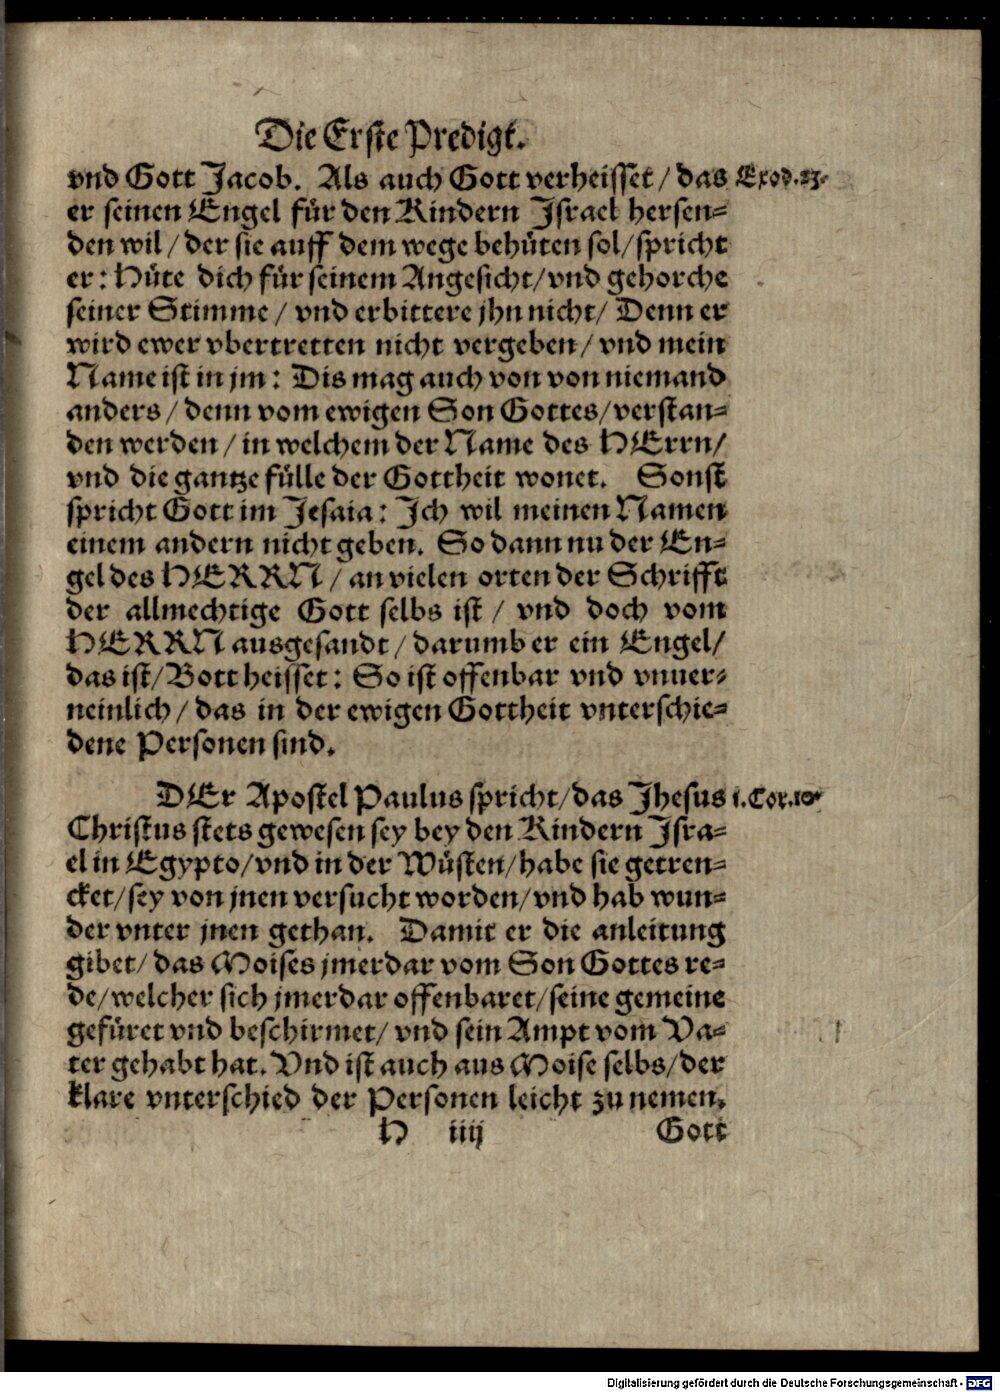 Die Erste Predigt.
vnd Gott Jacob. Als auch Gott verheisset/das Exod.23.
er seinen Engel für den Kindern Israel hersen-
den wil/der sie auff dem wege behüten sol/spricht
er: Hüte dich für seinem Angesicht/vnd gehorche
seiner Stimme/ vnd erbittere jhn nicht/ Denn er
wird ewer vbertretten nicht vergeben/vnd mein
Name ist in jm: Dis mag auch von von niemand
anders/denn vom ewigen Son Gottes/verstan-
den werden/in welchem der Name des HErrn/
vnd die gantze fülle der Gottheit wonet. Sonst
spricht Gott im Jesaia: Ich wil meinen Namen
einem andern nicht geben. So dann nu der En-
gel des HERRN/an vielen orten der Schrifft
der allmechtige Gott selbs ist/ vnd doch vom
HERRN ausgesandt/darumb er ein Engel/
das ist/Bott heisset: So ist offenbar vnd vnuer-
neinlich/das in der ewigen Gottheit vnterschie-
dene Personen sind.
DEr Apostel Paulus spricht/das Jhesus 1.Cor.10.
Christus stets gewesen sey bey den Kindern Isra-
el in Egypto/vnd in der Wüsten/habe sie getren-
cket/sey von jnen versucht worden/vnd hab wun-
der vnter jnen gethan. Damit er die anleitung
gibet/das Moises jmerdar vom Son Gottes re-
de/welcher sich jmerdar offenbaret/seine gemeine
gefüret vnd beschirmet/ vnd sein Ampt vom Va-
ter gehabt hat. Vnd ist auch aus Moise selbs/der
klare vnterschied der Personen leicht zu nemen.
H iiij Gott
Digitalisierung gefördert durch die Deutsche Forschungsgemeinschaft - DFG